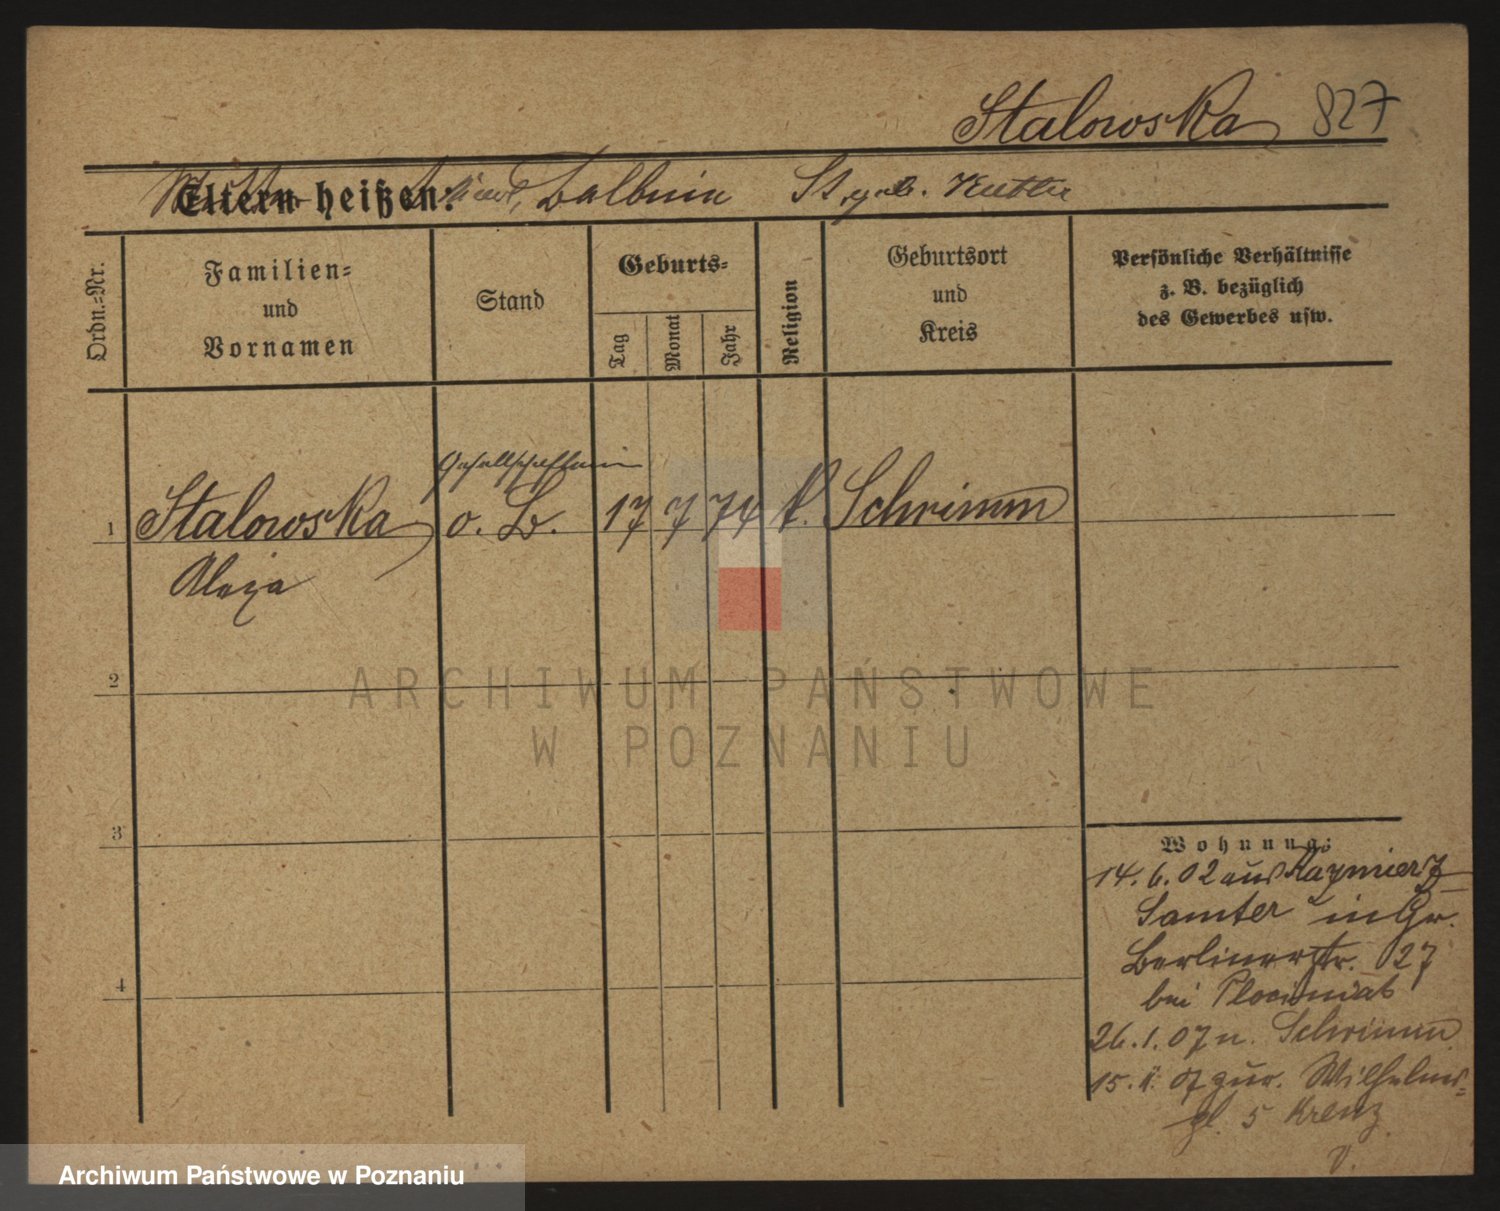 Stalowska 827
Eltern heißen: Balbina St geb.
Ordn.=Nr.
Familien=
und
Vornamen
Stand
Geburts=
Tag
Monat
Jahr
Religion
Geburtsort
und
Kreis
Persönliche Verhältnisse
z. B. bezüglich
des Gewerbes usw.
Gesellschafterin
1 Stalowska o. B. 17 7 74 k. Schrimm
2
3
4
Wohnung:
14. 6. 02 aus Kazmierz
Samter in Gr.
Berlinerstr. 27
bei Plociniak
26. 1. 07 n. Schrimm
15. 07 zur. Wilhelms=
pl. 5 Krenz
V.
ARCHIWUM PAŃSTWOWE
W POZNANIU
Archiwum Państwowe w Poznaniu